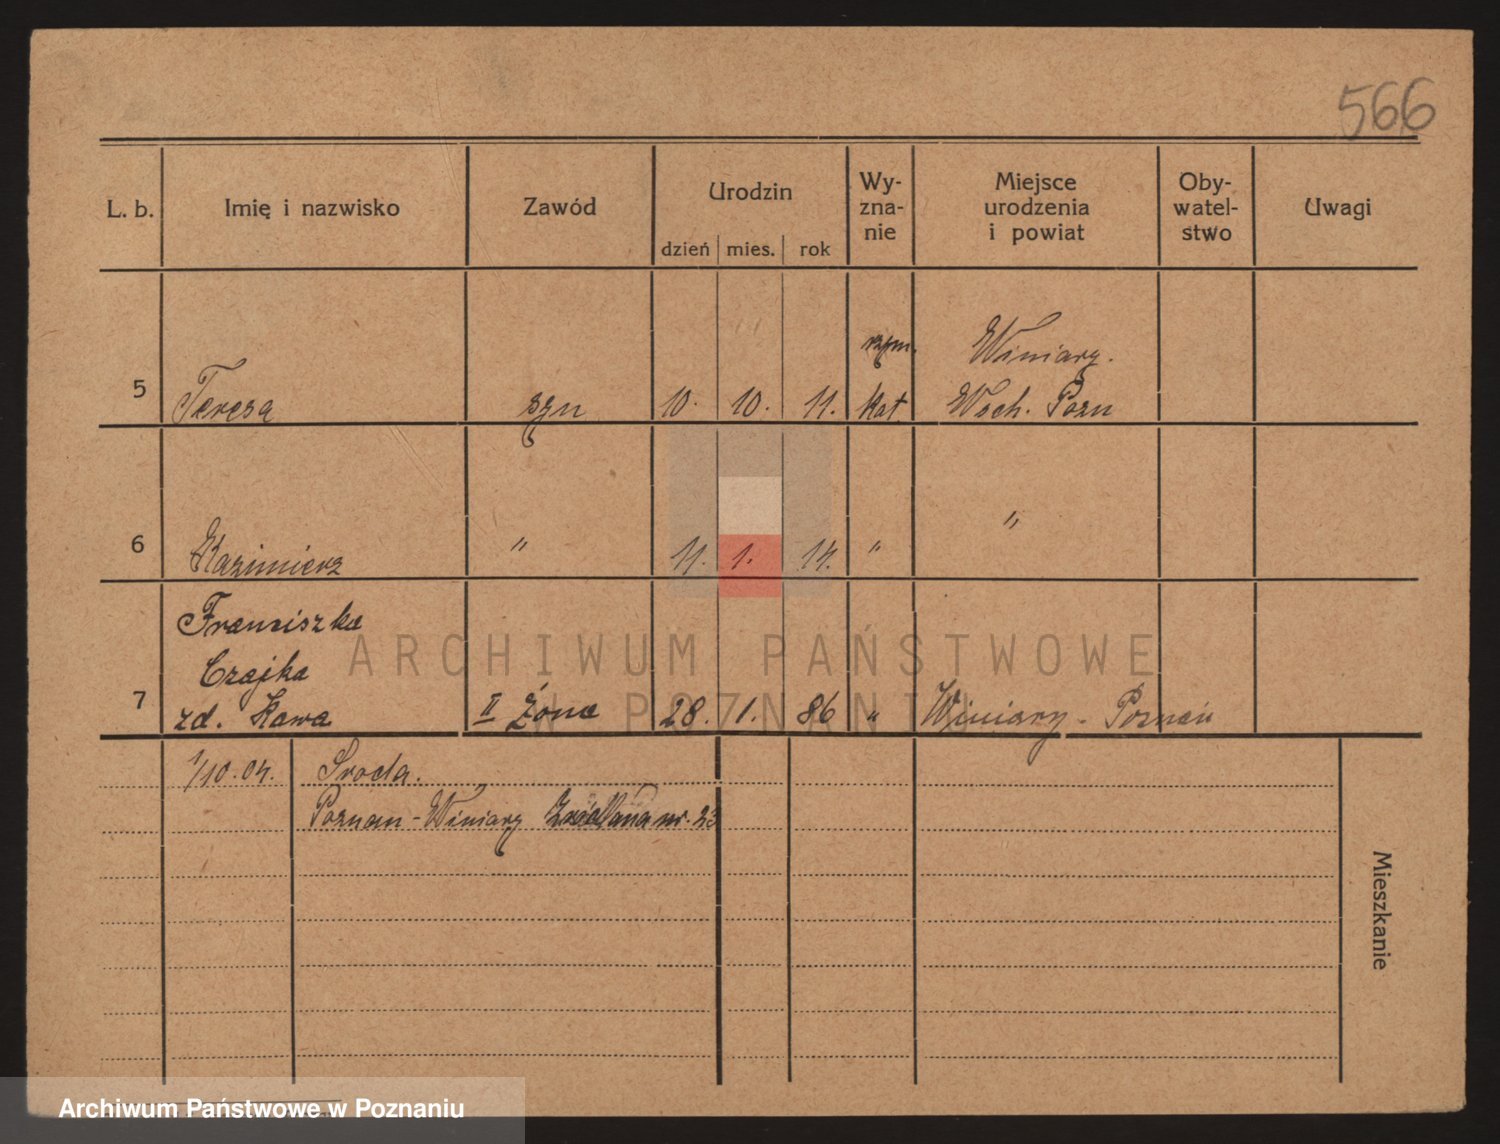 566
L. b. Imię i nazwisko Zawód Urodzin Wy-zna-nie Miejsce urodzenia i powiat Oby-watel-stwo Uwagi
dzień mies. rok
rzym. Winiary.
5 Teresa syn 10. 10. 11. kat Wsch. Pozn
6 Kazimierz " 11. 1. 14. " "
Franciszka
Czajka
7 zd. Kawa II żona 28. 1. 86 " Winiary - Poznań
ARCHIWUM PAŃSTWOWE
W POZNANIU
1/10.04. Sroda.
Poznan - Winiary nr. 23
Mieszkanie
Archiwum Państwowe w Poznaniu